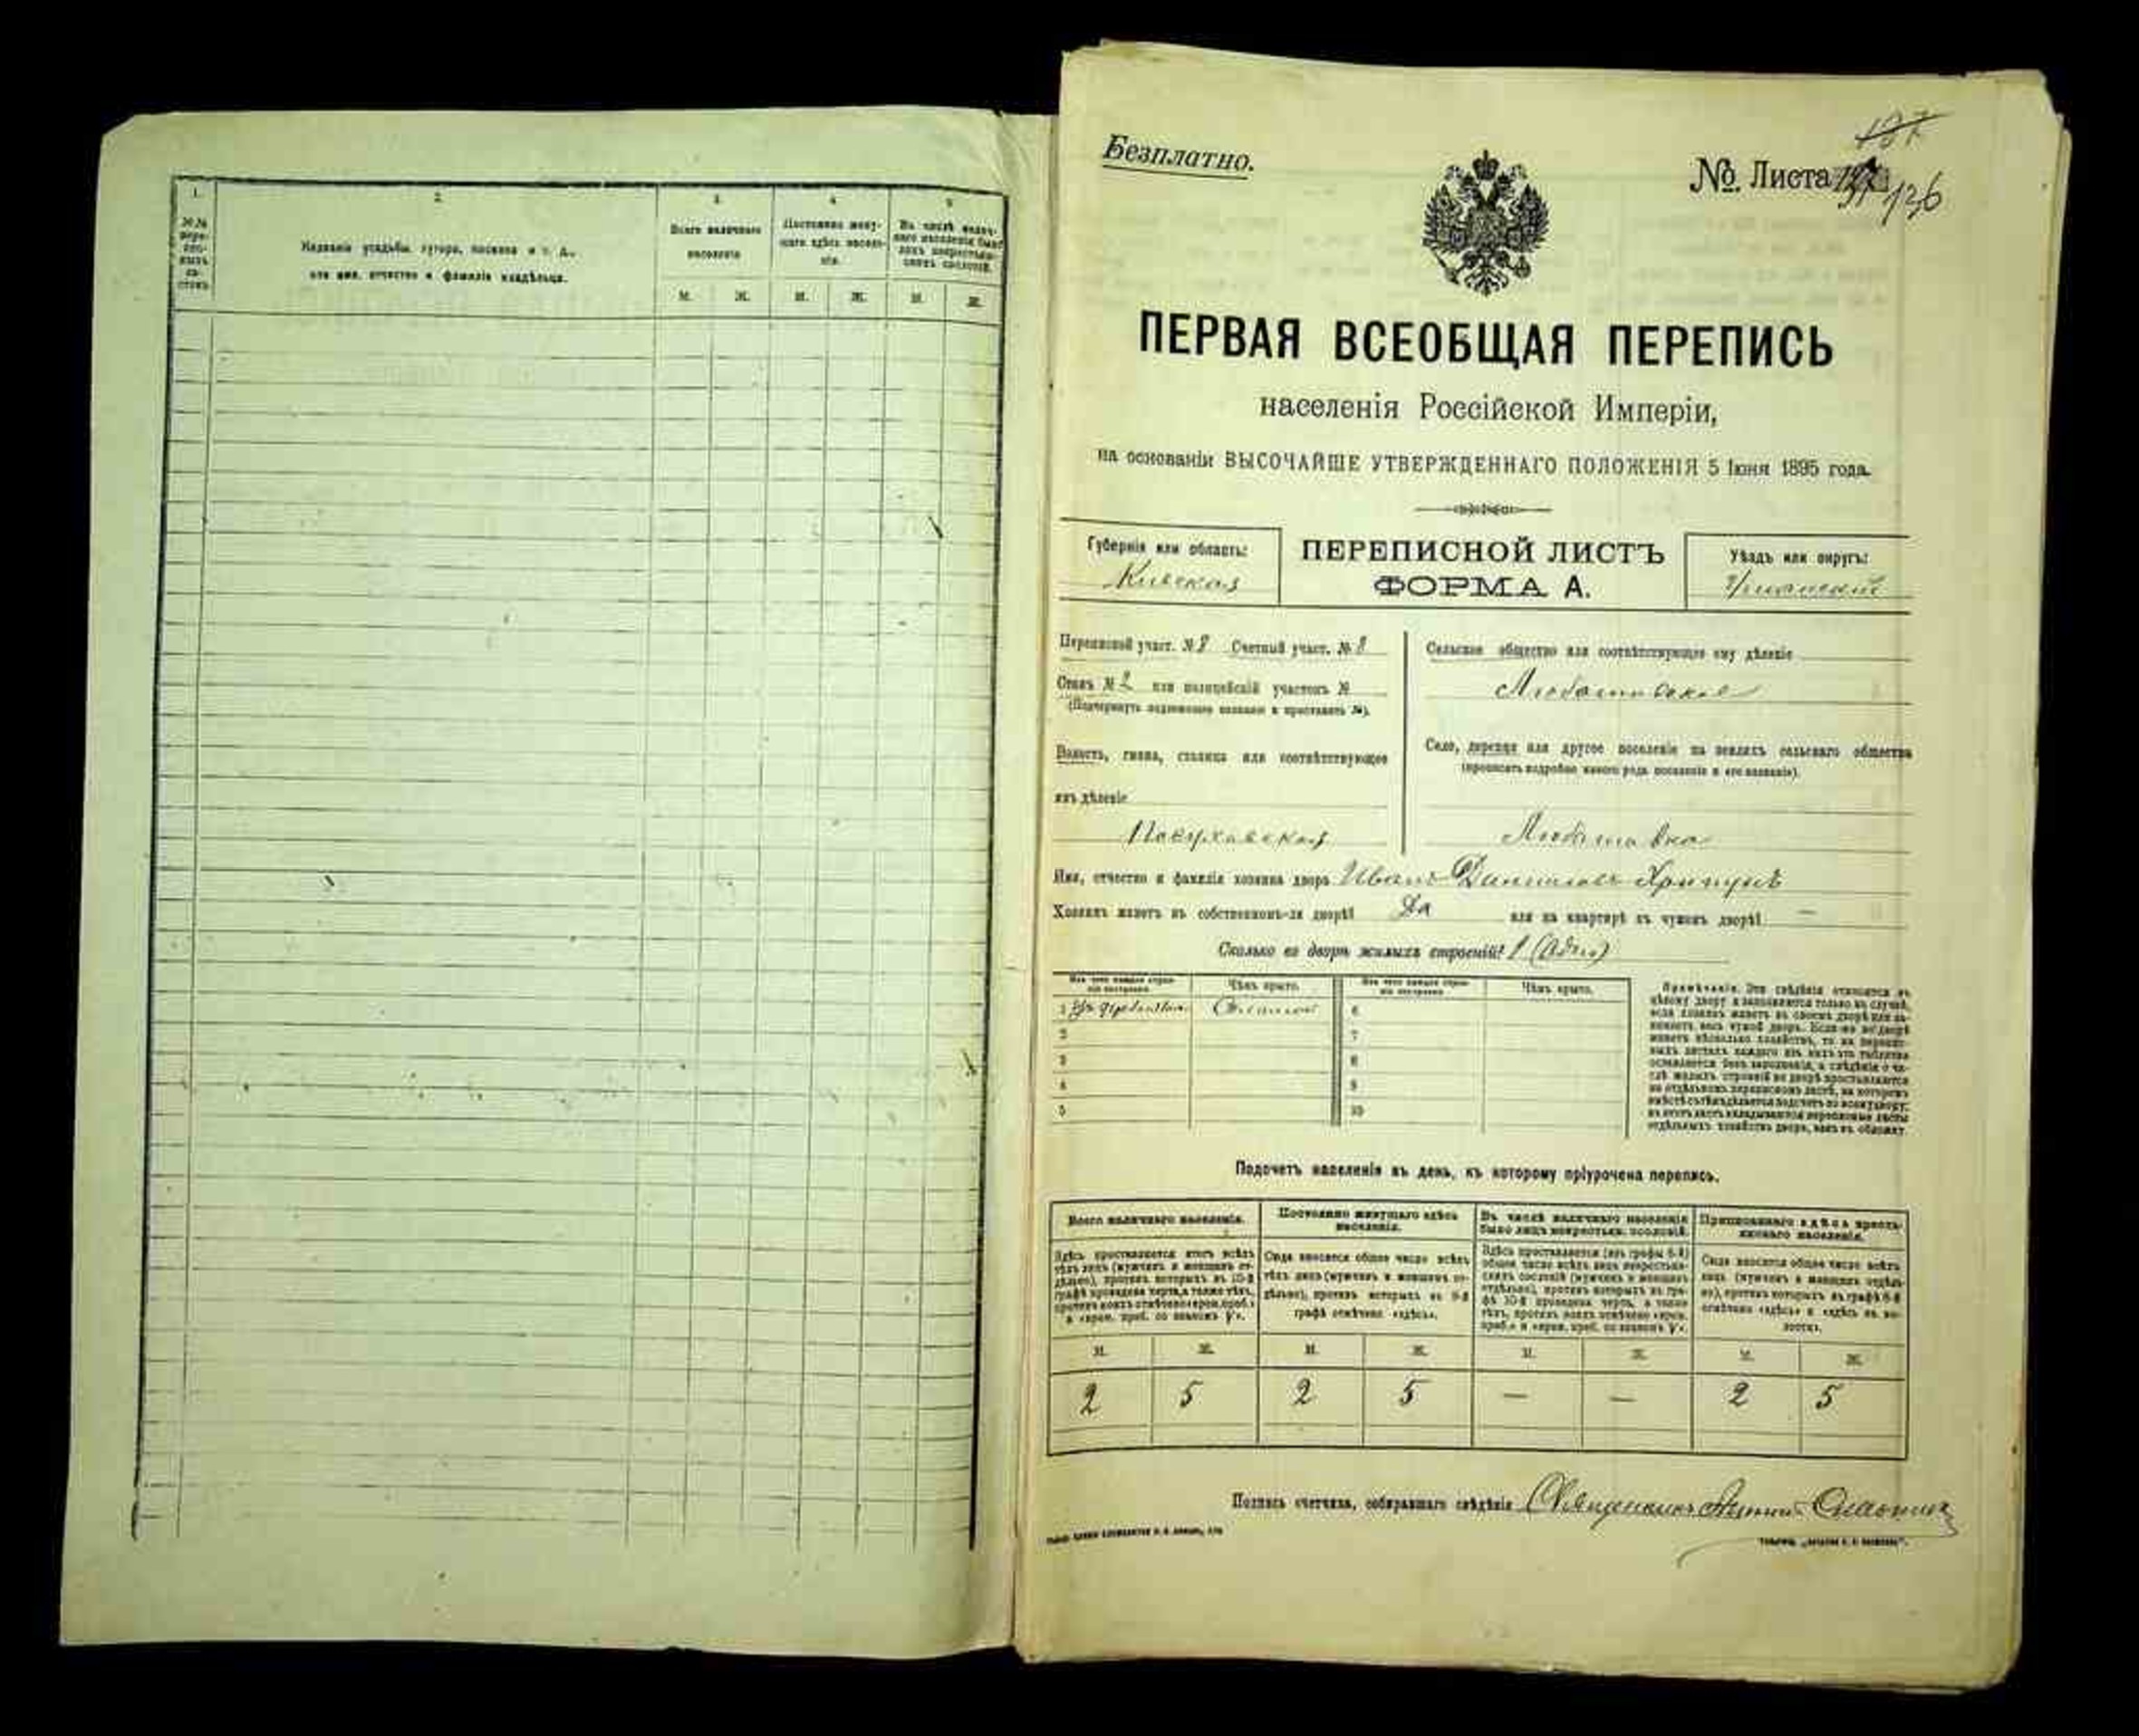 1.
2.
3.
4.
5.
Названіе усадьбы, хутора, поселка и т. д.,
или имя, отчество и фамилія владѣльца.
Всего наличнаго
населенія
Постоянно живу-
щаго здѣсь населе-
нія.
Въ числѣ налич-
наго населенія было
лицъ некрестьян-
скихъ сословій.
М. Ж. М. Ж. М. Ж.
Безплатно.
№ Листа 136
ПЕРВАЯ ВСЕОБЩАЯ ПЕРЕПИСЬ
населенія Россійской Имперіи,
на основаніи ВЫСОЧАЙШЕ УТВЕРЖДЕННАГО ПОЛОЖЕНІЯ 5 Іюня 1895 года.
Губернія или область:
Кіевская
ПЕРЕПИСНОЙ ЛИСТЪ
ФОРМА А.
Уѣздъ или округъ:
Уманскій
Переписной участ. № 8 Счетный участ. № 8
Станъ № 2 или полицейскій участокъ №
(Подчеркнуть надлежащее названіе и проставить №).
Волость, гмина, станица или соотвѣтствующее
имъ дѣленіе
Посуховская
Сельское общество или соотвѣтствующее ему дѣленіе
Село, деревня или другое поселеніе на земляхъ сельскаго общества
(прописать подробно какого рода поселеніе и его названіе).
Имя, отчество и фамилія хозяина двора Иванъ Хрипунъ
Хозяинъ живетъ въ собственномъ-ли дворѣ? Да или на квартирѣ въ чужомъ дворѣ? —
Сколько во дворѣ жилыхъ строеній? 1 (Одно)
Изъ чего каждое строе-
ніе построено. Чѣмъ крыто. Изъ чего каждое строе-
ніе построено. Чѣмъ крыто.
1 6
2 7
3 8
4 9
5 10
Примѣчаніе. Эти свѣдѣнія относятся къ
цѣлому двору и заполняются только въ случаѣ,
если хозяинъ живетъ въ своемъ дворѣ или за-
нимаетъ весь чужой дворъ. Если же во дворѣ
живетъ нѣсколько хозяйствъ, то на перепис-
ныхъ листахъ каждаго изъ нихъ эта табличка
оставляется безъ заполненія, а свѣдѣнія о чи-
слѣ жилыхъ строеній во дворѣ проставляются
на отдѣльномъ переписномъ листѣ, на которомъ
вмѣстѣ съ тѣмъ дѣлается подсчетъ по всему двору;
въ этотъ листъ вкладываются переписные листы
отдѣльныхъ хозяйствъ двора, какъ въ обложку.
Подсчетъ населенія въ день, къ которому пріурочена перепись.
Всего наличнаго населенія.
Здѣсь проставляется итогъ всѣхъ
тѣхъ лицъ (мужчинъ и женщинъ от-
дѣльно), противъ которыхъ въ 10-й
графѣ проведена черта, а также тѣхъ,
противъ коихъ отмѣчено «врем. преб.»
и «врем. преб. со знакомъ V».
Постоянно живущаго здѣсь
населенія.
Сюда вносится общее число всѣхъ
тѣхъ лицъ (мужчинъ и женщинъ от-
дѣльно), противъ которыхъ въ 9-й
графѣ отмѣчено «здѣсь».
Въ числѣ наличнаго населенія
было лицъ некрестьян. сословій.
Здѣсь проставляется (изъ графы 6-й)
общее число всѣхъ лицъ некрестьян-
скихъ сословій (мужчинъ и женщинъ
отдѣльно), противъ которыхъ въ гра-
фѣ 10-й проведена черта, а также
тѣхъ, противъ коихъ отмѣчено «врем.
преб.» и «врем. преб. со знакомъ V».
Приписаннаго здѣсь кресть-
янскаго населенія.
Сюда вносится общее число всѣхъ
лицъ (мужчинъ и женщинъ отдѣль-
но), противъ которыхъ въ графѣ 8-й
отмѣчено «здѣсь» и «здѣсь въ во-
лости».
М. Ж. М. Ж. М. Ж. М. Ж.
2 5 2 5 — — 2 5
Подпись счетчика, собиравшаго свѣдѣнія Священникъ